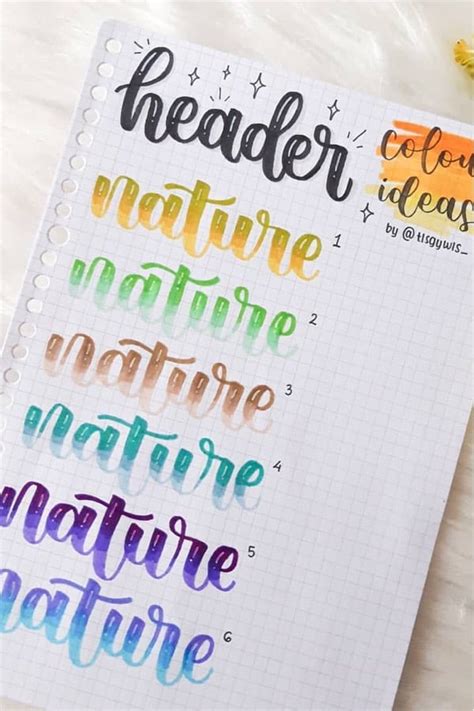 header
colou
ideas
by @tlsgywls_
nature 1
nature 2
nature 3
nature 4
nature 5
nature 6